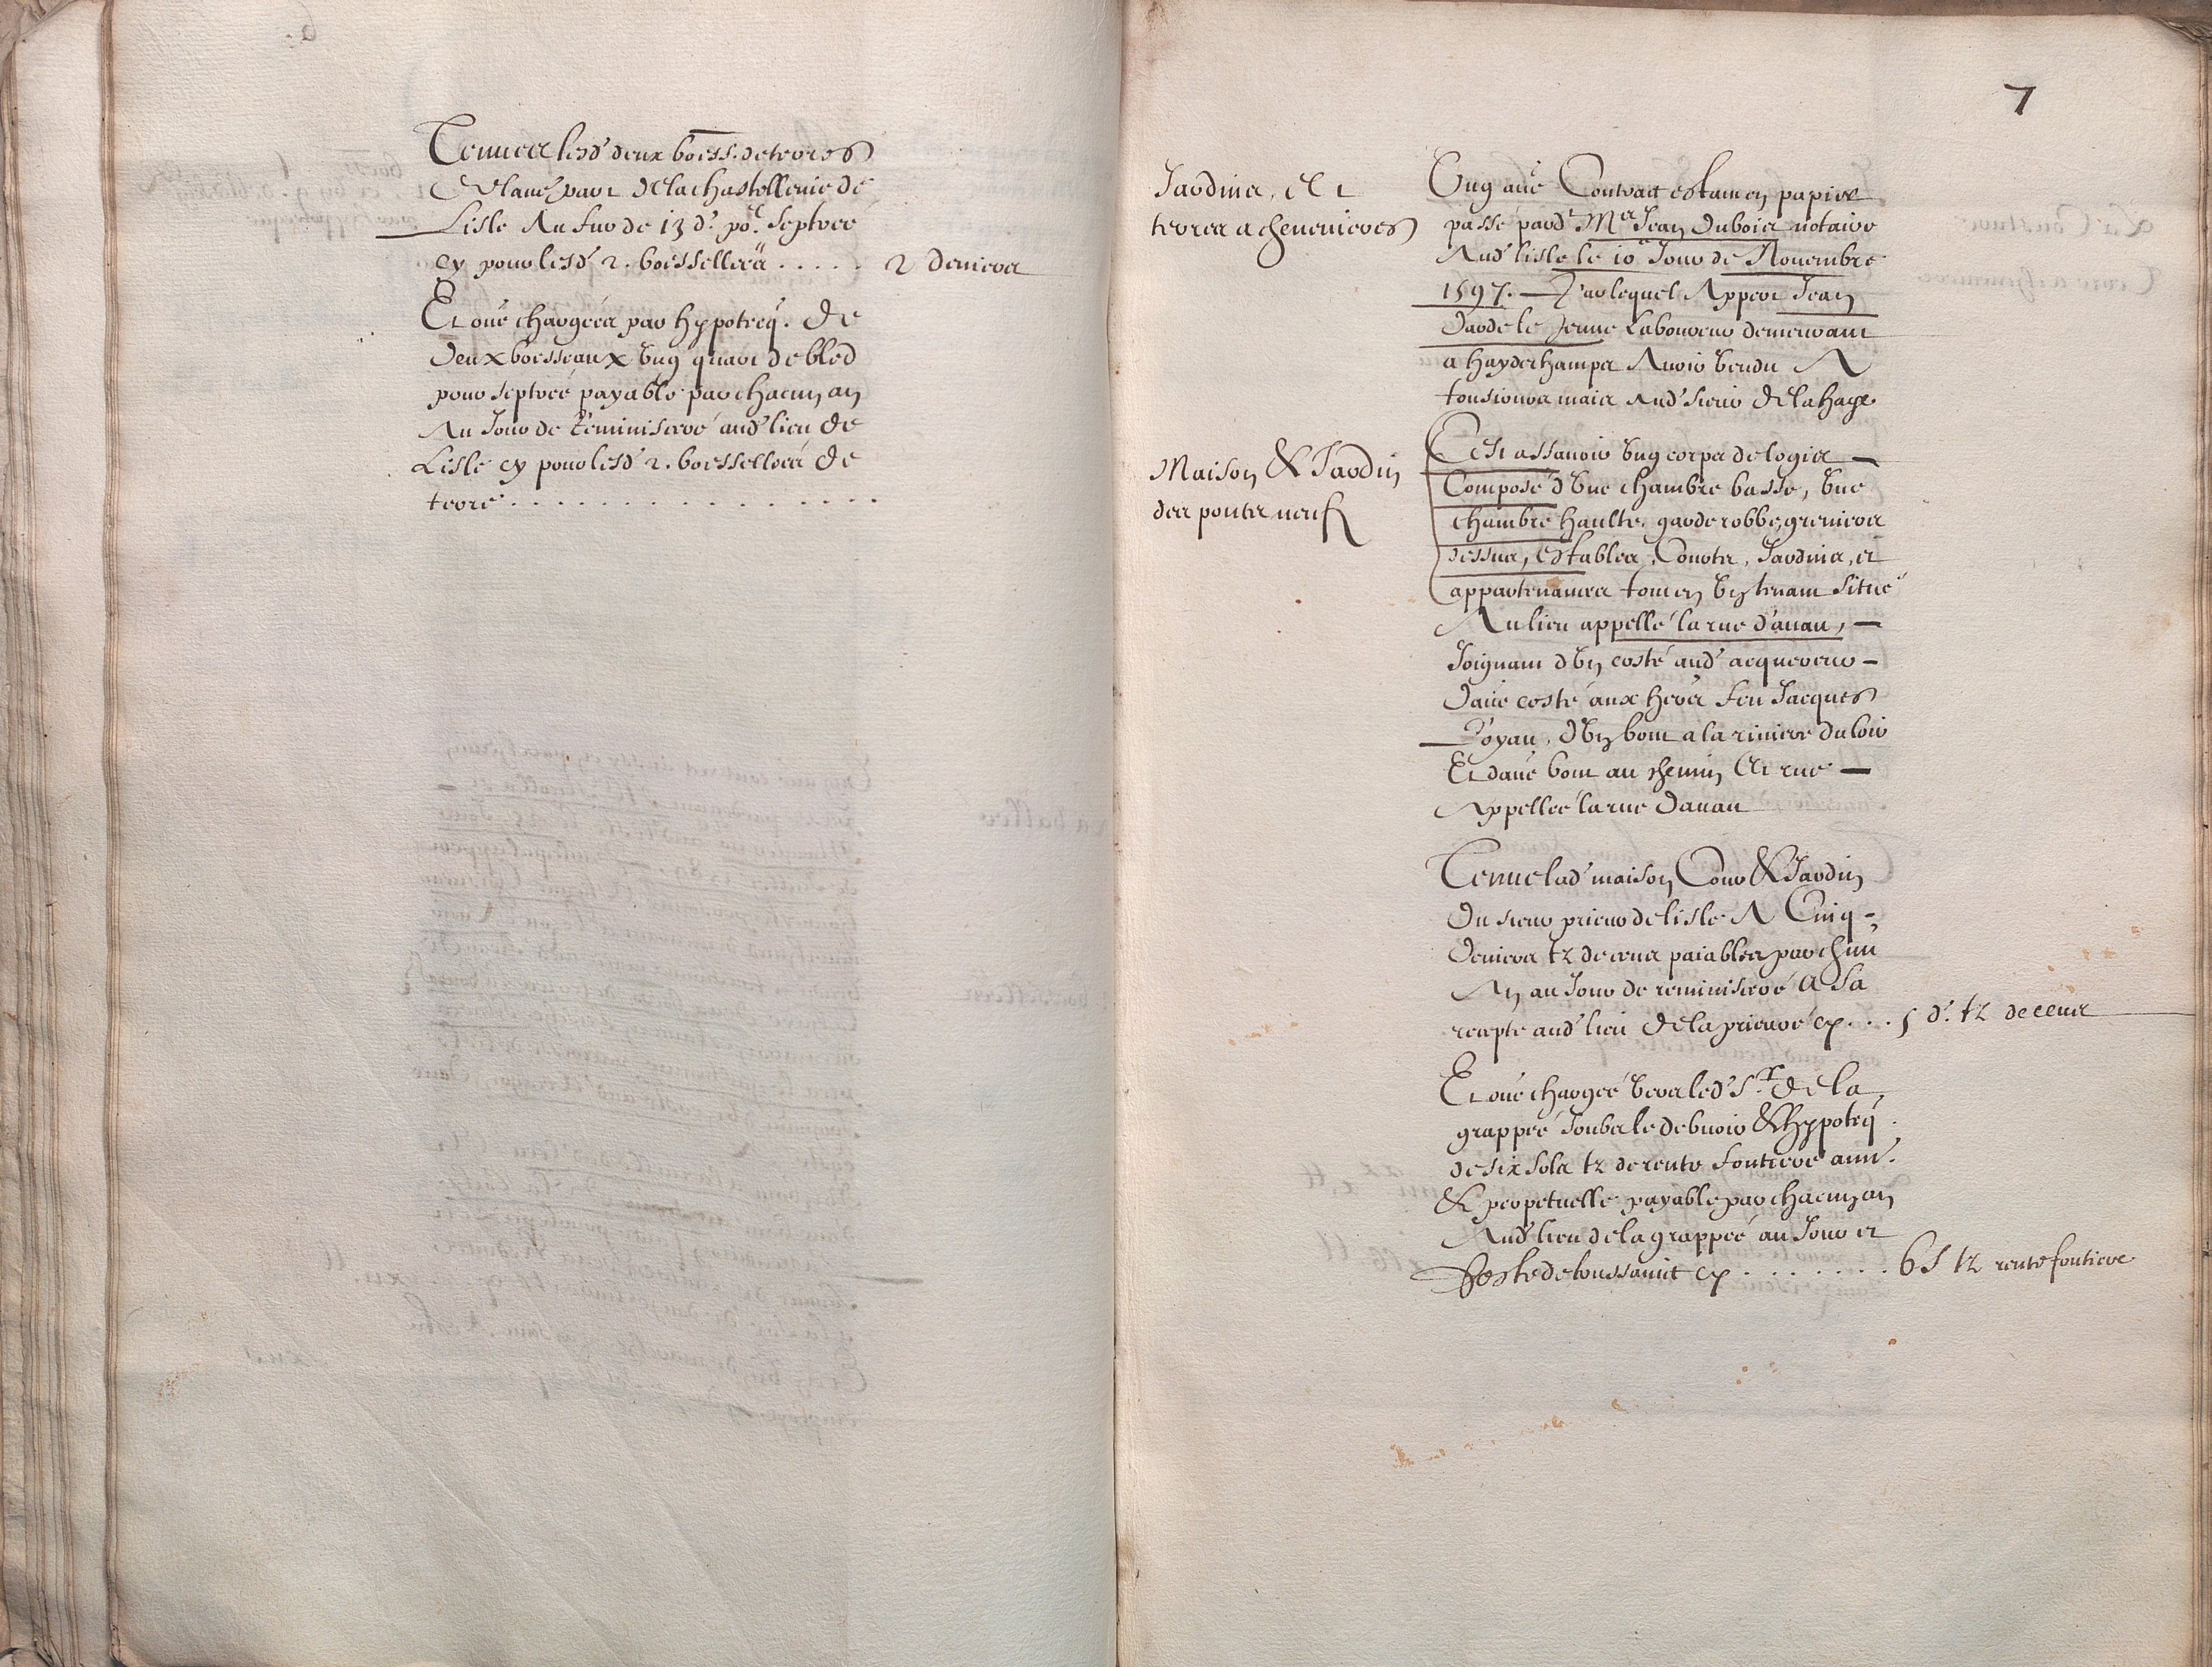 Tenues lesd' deux boess. de terres
Et lautre part de la chastellenie de
Lisle Au fur de 13 d. po^r septree
cy pour lesd' 2. boessellees . . . . . 2 deniers
Et oure chargees par hypotecq. de
deux boesseaux ung quart de bled
pour septree payable par chacun an
Au Jour de Reminiscere aud' lieu de
Lisle cy pour lesd' 2. boessellees de
terre . . . . . . . . . . . . . . .
7
Jardins, Et
terres a chenevieres
Ung au~e Contract estant en papier
passe pard' M^e Jean Dubois notaire
Aud' lisle le 10^e Jour de Novembre
1597. — Par lequel Appert Jean
Darde le Jeune Laboureur demeurant
a Haydechamps Avoir vendu A
tousiours mais Aud' sieur de la haye
Maison & Jardin
des ponts neufs
C'est assavoir ung corps de logis —
Compose d'une chambre basse, une
chambre haulte, garderobbe, greniers
dessus, estables, Courts, Jardins, et
appartenances tout en ung tenant situe
Au lieu appelle la rue d'avau, —
Joignant d'un coste aud' acquereur —
Dau~e coste aux hers feu Jacques
Poyau, d'un bout a la riviere du loir
Et dau~e bout au chemin Et rue —
Appellee la rue Davau
Tenue lad' maison Cour & Jardin
Du sieur prieur de lisle A Cinq -
Deniers tz de cens paiables par ch~un
An au Jour de reminiscere A Sa
recepte aud' lieu de la prieure cy . . . 5 d. tz de cens
Et oure chargee vers led' S^r de la
grappee soubz le debvoir & hypotecq
de six sols tz de rente fontiere ann.
& perpetuelle payable par chacun an
Aud' lieu de la grappee au Jour et
feste de toussainct cy . . . . . . . 6 s tz rente fontiere